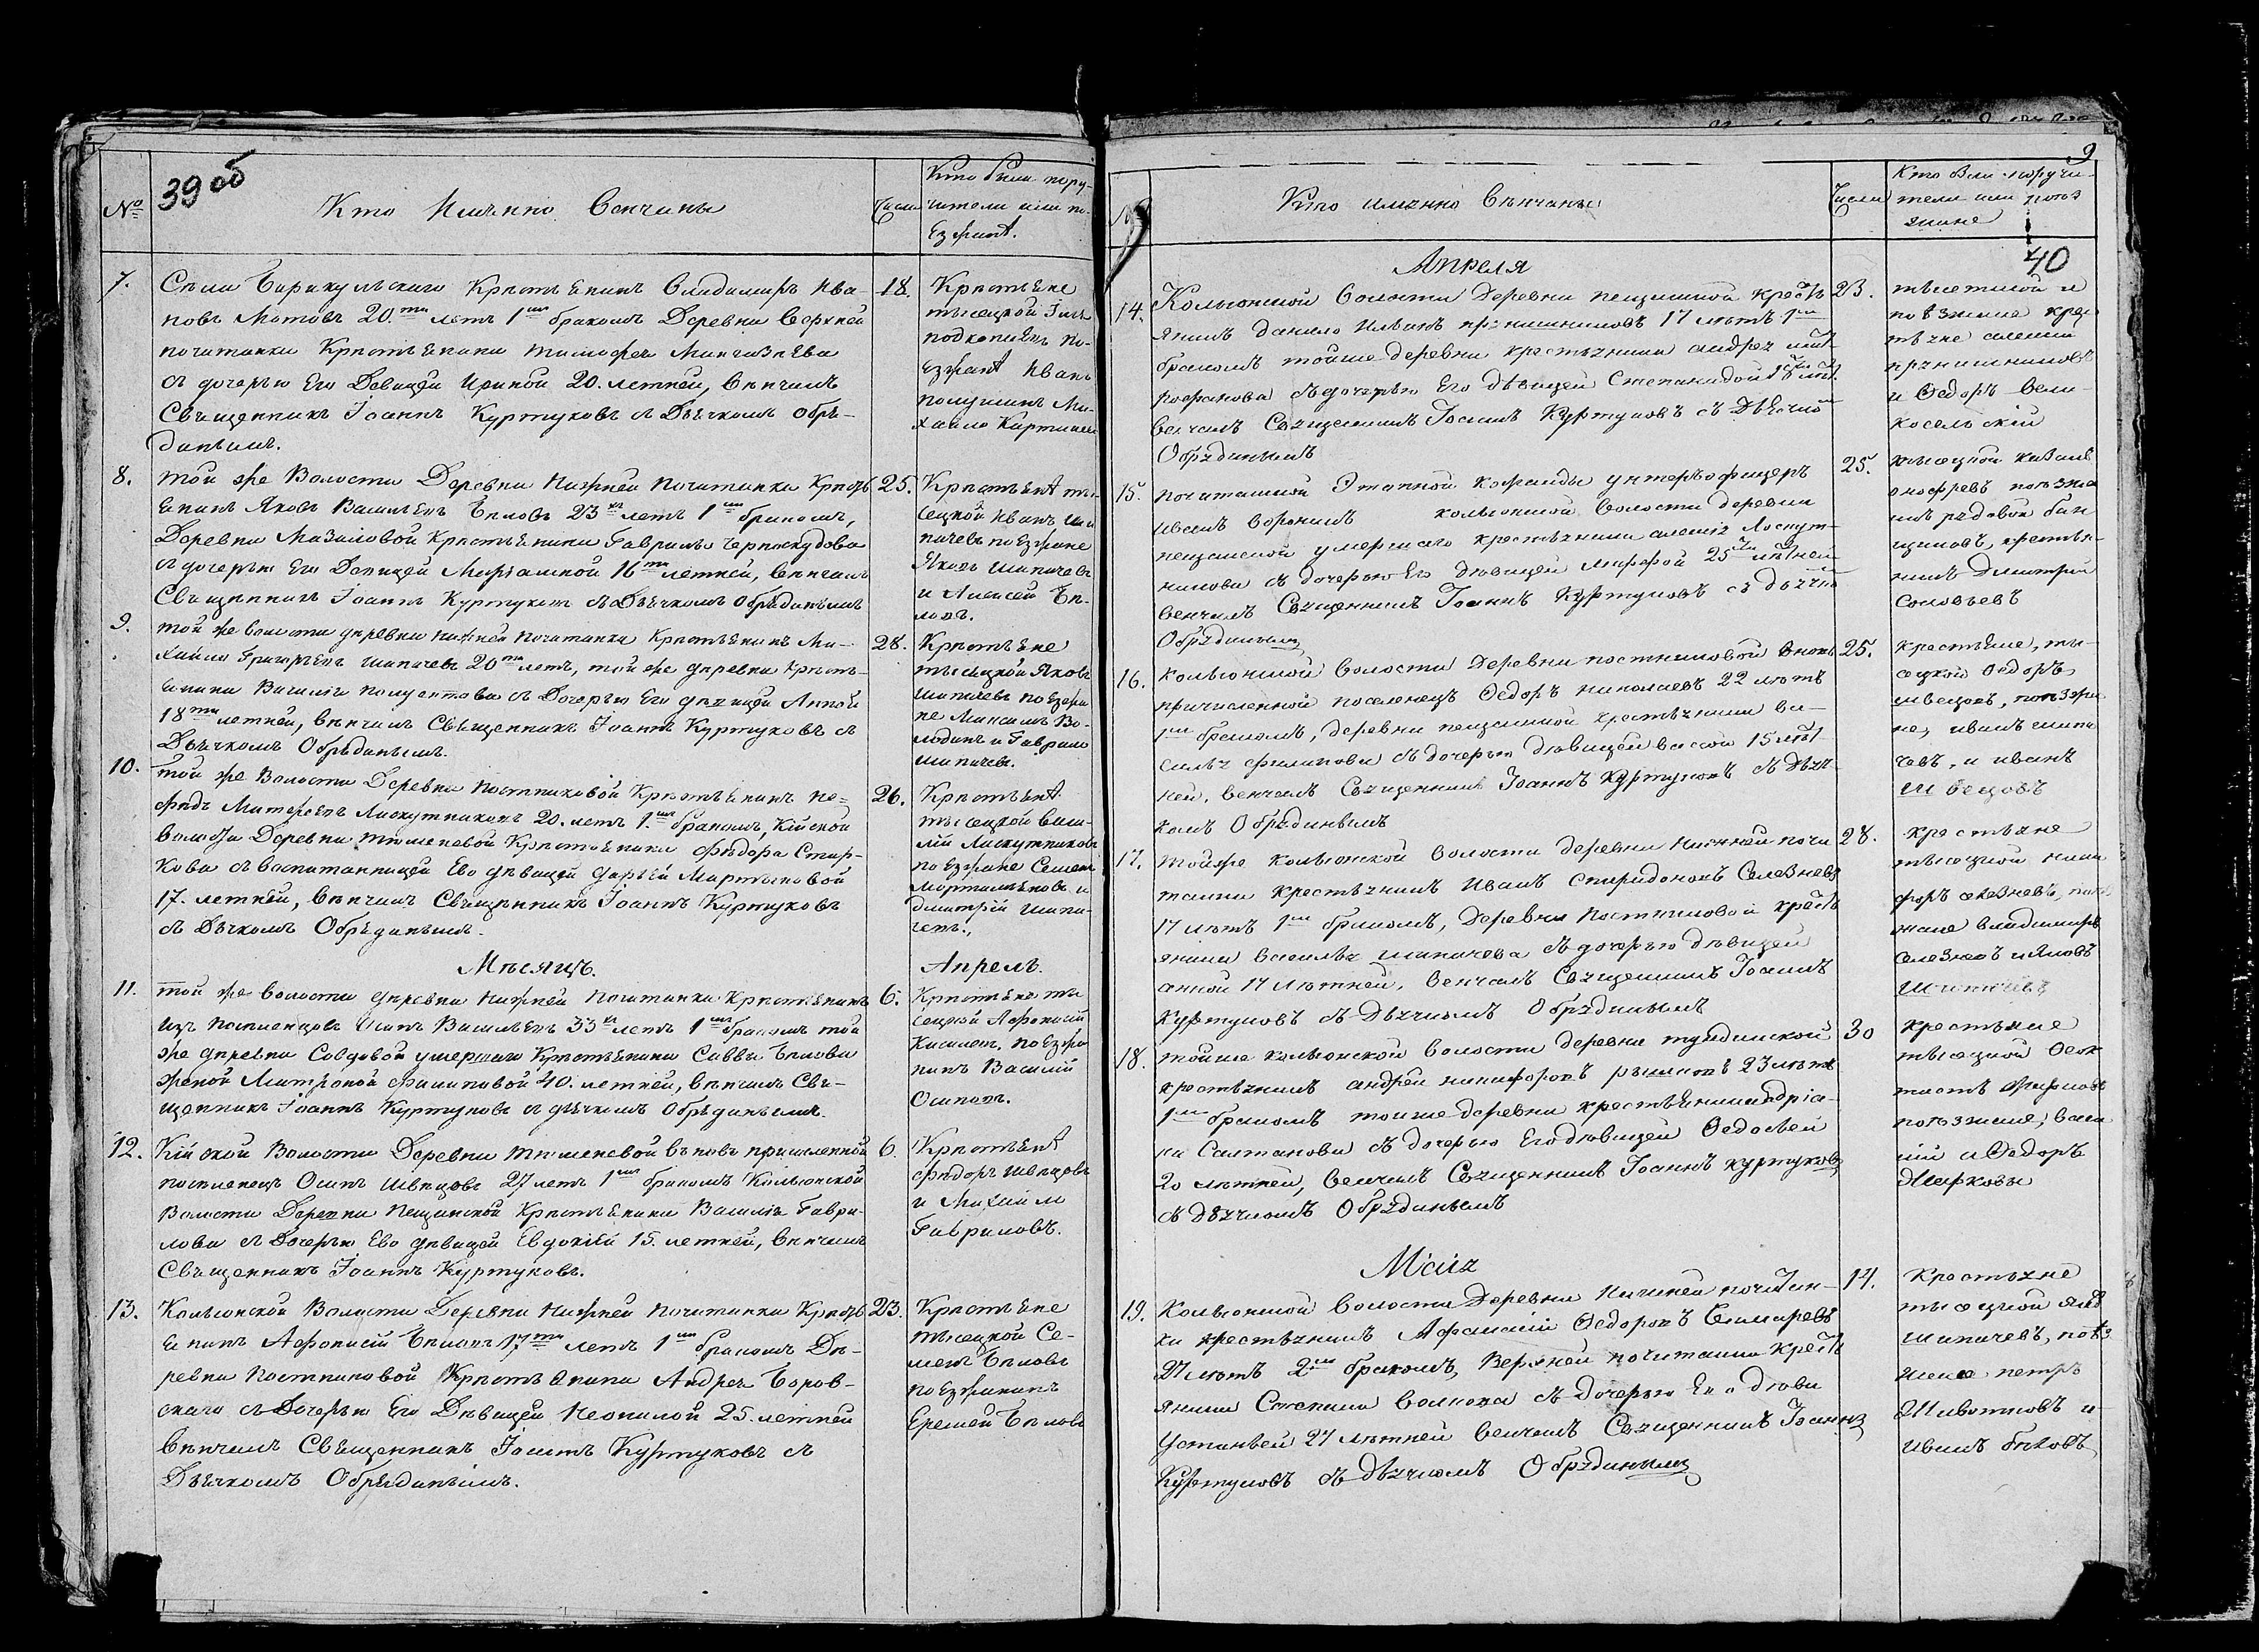 39 об
№
Кто Именно Венчаны
Числа
Кто были пору-
чители или по-
Езжанѣ.
7.
Села Тирикульскаго Крестьенинъ Владимиръ Ива-
новъ Мотовъ 20.ти летъ 1мъ бракомъ Деревни Верхней
почитанки Крестьенина тимофея
съ дочерью Его Девицей Ириной 20. летней, венчалъ
Священникъ Іоаннъ Куртуковъ съ Дьячкомъ Обрѣ-
даныимъ.
18.
Крестьене
тысецкой
по-
Езжанѣ Иванъ
Ми-
хайло
8.
той же Волости Деревни Нижней Почитанки Кресть
енинъ Яковъ Васильевъ Беловъ 23хъ летъ 1мъ бракомъ,
Деревни Мазаловой Крестьенина Гаврилы Черноскудова
съ дочерью Его Девицей 16ти летней, венчалъ
Священникъ Іоаннъ Куртуковъ съ Дьячкомъ Обрѣданыимъ
25.
Крестьенѣ ты-
сецкой Иванъ Ши
пачевъ поЕзжане
Яковъ Шипачевъ
и Алексей Бе-
ловъ.
9.
той же волости деревни нижней почитанки Крестьенинъ Ми-
хайло Григорьевъ Шипачевъ 20ти летъ, той же деревни Кресть-
енина Василія съ Дочерью Его девицей Анной
18ти летней, венчалъ Священникъ Іоаннъ Куртуковъ съ
Дьячкомъ Обрѣданыимъ.
28.
Крестьене
тысецкой Яковъ
Шипачевъ поЕзжа
не Максимъ Во-
лодинъ и Гаврило
Шипачевъ.
10.
той же Волости Деревни Постниковой Крестьенинъ Не-
фидъ Матфеевъ Лоскутниковъ 20. летъ 1.мъ бракомъ, Кійской
волости Деревни тюменевой Крестьенина федора Стар-
кова съ Воспитанницей Ево девицей дарьей Мартыновой
17. летней, венчалъ Священникъ Іоаннъ Куртуковъ
съ Дьячкомъ Обрѣданыимъ.
26.
Крестьенѣ
тысецкой Васи-
лій Лоскутниковъ
поЕзжане Семенъ
Мортамьяновъ и
дмитрій Шипа-
чевъ.
Месяцъ.
Апрель.
11.
той же волости деревни Нижней Почитанки Крестьенинъ
изъ поселенцовъ Осипъ Васильевъ 33хъ летъ 1мъ бракомъ той
же деревни Совдовой умершаго Крестьенина Саввы Белова
женой Матроной Филиповой 40. летней, венчалъ Свя-
щенникъ Іоаннъ Куртуковъ съ дьячкомъ Обрѣданыимъ.
6.
Крестьене ты
сецкой Афонасій
Киселевъ, поЕзжа
нинъ Василій
Осиповъ.
12.
Кійской Волости Деревни тюменевой въновъ причисленной
поселенецъ Осипъ Швецовъ 27 летъ 1мъ бракомъ Колыонской
Волости Деревни Пещанской Крестьенина Василія Гаври-
лова съ Дочерью Ево девицей Евдокіей 15. летней, венчалъ
Священникъ Іоаннъ Куртуковъ.
6.
Крестьенѣ
федоръ Швецовъ
и Михайло
Гавриловъ.
13.
Колыонской Волости Деревни Нижней Почитанки Кресть
енинъ Афонасій Беловъ 17ти летъ 1мъ бракомъ Де-
ревни Постниковой Крестьенина Андрея Боров-
скаго съ Дочерью Его Девицей Неонилой 25. летней
венчалъ Священникъ Іоаннъ Куртуковъ съ
Дьячкомъ Обрѣданыимъ.
23.
Крестьене
тысецкой Се-
менъ Беловъ
поЕзжанинъ
Еремей Беловъ
9
№
Кто именно венчаны
Числа
Кто были поручи-
тели или поѣз
жане
40
Апреля
14.
Колыонской Волости Деревни пещанской кресть
янинъ данило Ильинъ прянишниковъ 17 лѣтъ 1мъ
бракомъ тойже деревни крестьянина андрея мит-
рофанова съ дочерью Его дѣвицей Степанидой лѣт.
венчалъ Священникъ Іоаннъ Куртуковъ съ Дьячко
Обрядинымъ
23.
тысетской и
поѣзжане кре
стьяне алексѣй
прянишниковъ
и Ѳедоръ Вели-
косельскій
15.
почитанской Этапной команды унтеръофицеръ
иванъ воронинъ колыонской волости деревни
пещанской умершаго крестьянина алексія Лоскут-
никова съ дочерью Его дѣвицей марфой 25ти лѣтней
венчалъ Священникъ Іоаннъ Куртуковъ съ дьячко
Обрядинымъ
25.
тысецкой
онофревъ поѣзжа
нинъ рядовой
крестья-
нинъ Дмитрій
Соловьевъ
16.
колыонской волости деревни постниковой вновь
причисленной поселенецъ Ѳедоръ николаевъ 22 лѣтъ
1мъ бракомъ, деревни пещанской крестьянина ва-
силья филипова съ дочерью дѣвицей вассой 15 лѣт-
ней, венчалъ Священникъ Іоаннъ Куртуковъ съ дьяч-
комъ Обрядинымъ
25.
крестьяне, ты-
сецкой Ѳедоръ
швецовъ, поѣзжа
не, иванъ шипа
чевъ, и иванъ
Швецовъ
17.
тойже колыонской волости деревни нижней почи
танки крестьянинъ Иванъ Спиридоновъ Селезневъ
17 лѣтъ 1мъ бракомъ, деревни постниковой кресть
янина василья шипачева съ дочерью дѣвицей
анной 17 лѣтней, венчалъ Священникъ Іоаннъ
Куртуковъ съ дьячкомъ Обрядинымъ
28.
крестьяне
тысецкой ники
форъ селезневъ, поѣз
жане владимиръ
селезневъ и Яковъ
Шипачевъ
18.
тойже колыонской волости деревни тундинской
крестьянинъ андрей никифоровъ 23 лѣтъ
1мъ бракомъ тоиже деревни крестьянина адріа-
на Салтанова съ дочерью Его дѣвицей Ѳедосьей
20 лѣтней, венчалъ Священникъ Іоаннъ куртуковъ
съ дьячкомъ Обрядинымъ
30
крестьяне
тысецкой Ѳеок
тистъ
поѣзжане, васи
лій и Ѳедоръ
Жирковы
Маія
19.
Колыонской волости Деревни нижней почитан-
ки крестьянинъ Афанасій Ѳедоровъ
27 лѣтъ 2мъ бракомъ, Верхней почитанки кресть
янина Степана волкова съ дочерью Его дѣви
Устиньей 27 лѣтней венчалъ Священникъ Іоаннъ
Куртуковъ съ дьячкомъ Обрядинымъ
14.
Крестьяне
тысецкой яковъ
шипачевъ, поѣз
жане петръ
Животковъ и
иванъ быковъ